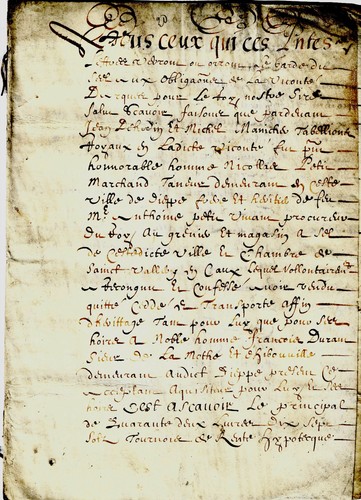 A tous ceux qui ces pntes
lettres verront ou orront le garde du
seel aux obligaōns de la Viconté
Darques pour Le Roy nostre sire
salut scavoir faisons que pardevant
Jean et Michel Tabellions
Royaux en Ladicte Viconté fut pnt
honnorable homme Nicollas Petit
Marchand Taneur demeurant en ceste
Ville de dieppe frere et heritier de feu
Me Anthoine petit vivant procureur
du Roy Au grenier et magasin a sel
de Cestedicte Ville et Chambre de
sainct Vallery en Caux Lequel Vollontairemt
et Confessé Avoir vendu
quitté Ceddé et Transporté affin
dherittage Tant pour Luy que pour ses
hoirs A Noble homme francois Duran
sieur de La Mothe et
demeurant Audict dieppe present et
Acceptant Aquisiteur pour Luy et ses
hoirs Cest Ascavoir Le principal
de Quarante deux Livres dix sept
solz Tournois de Rente Hypotecque